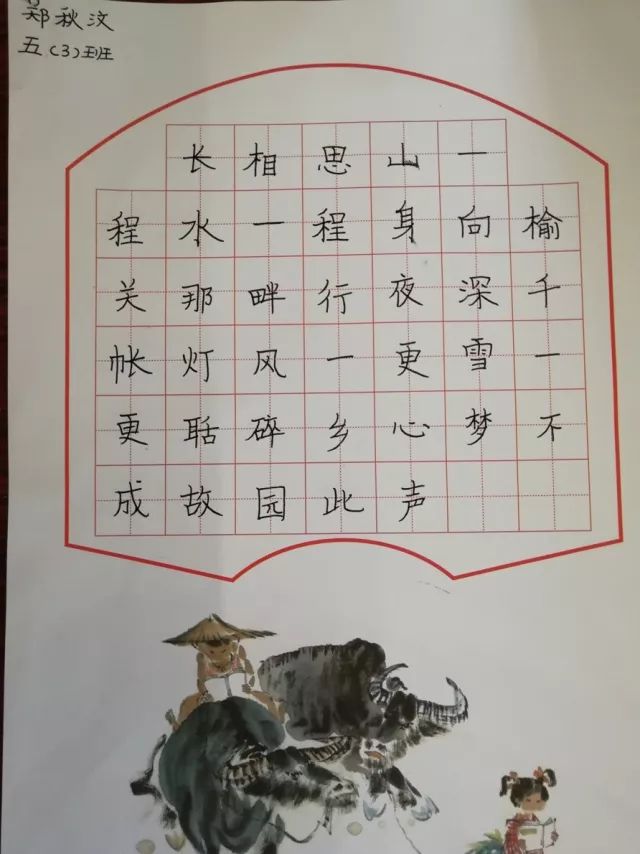 郑秋汶
五(3)班
长相思山一
程水一程身向榆
关那畔行夜深千
帐灯风一更雪一
更聒碎乡心梦不
成故园此声